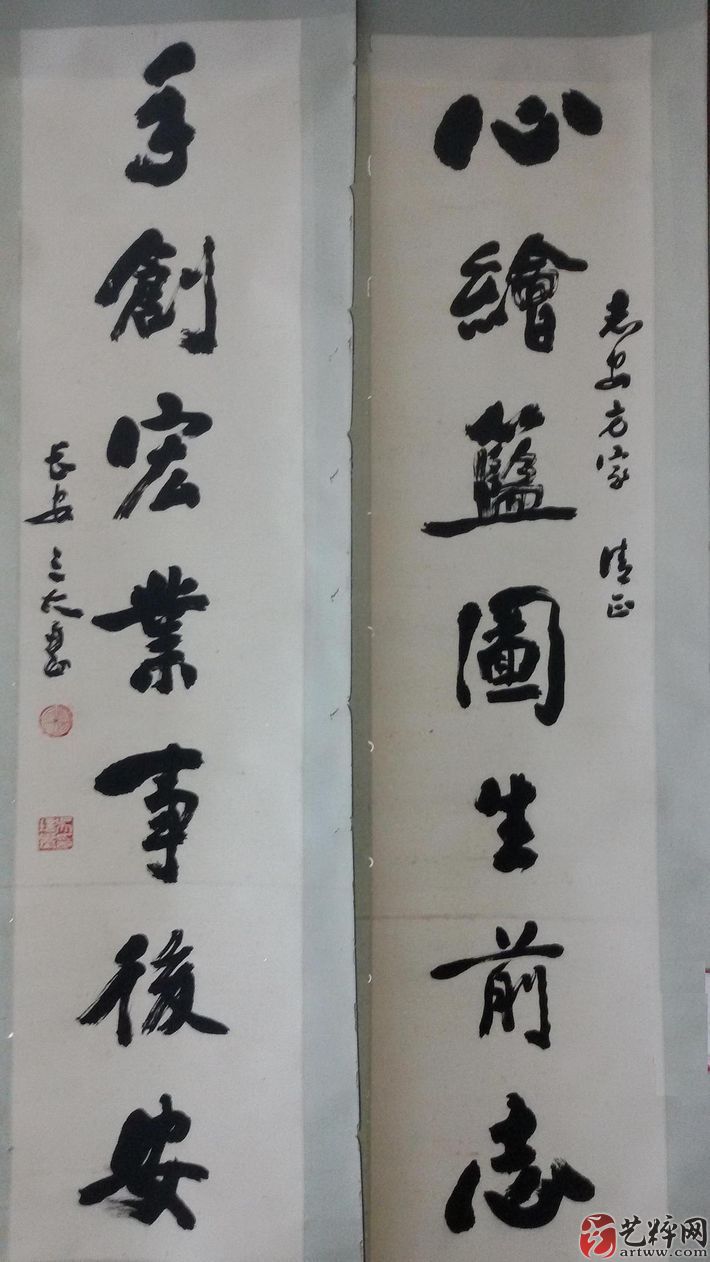 心繪籃圖生前志
志安方家 清正
手創宏業事後安
長安
艺粹网
artww.com